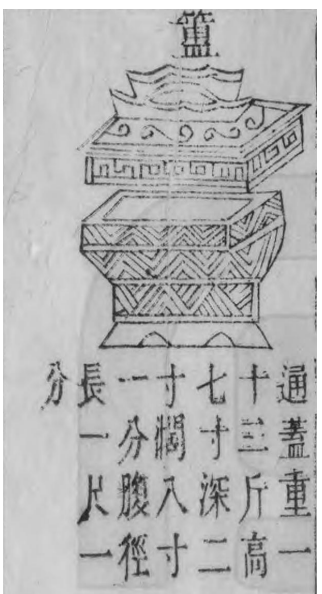 簠
通蓋重一
十三斤高
七寸深二
寸濶八寸
一分腹徑
長一尺一
分